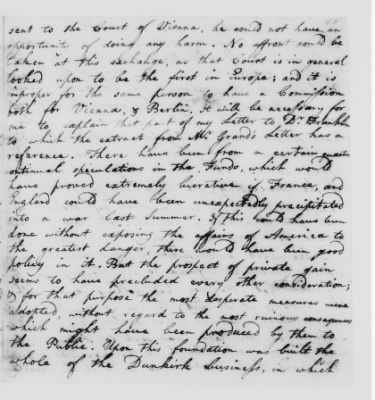 sent to the Court of Vienna, he could not have an
opportunity of doing any harm. No affront could be
taken at this exchange, as that Court is in general
looked upon to be the first in Europe; and it is
improper for the same person to have a Commission
both for Vienna, & Berlin. It will be necessary for
me to explain that part of my Letter to Dr. Franklin
to which the extract from Mr. Grand's Letter has a
reference. There have been from a certain
continual speculations in the Funds, which would
have proved extremely lucrative if France, and
England could have been unexpectedly precipitated
into a war last Summer. If this could have been
done without exposing the affairs of America to
the greatest danger, there would have been good
policy in it. But the prospect of private gain
seems to have precluded every other consideration;
& for that purpose the most desperate measures were
adopted, without regard to the most ruinous consequences
which might have been produced by them to
the Public. Upon this foundation was built the
whole of the Dunkirk business, in which